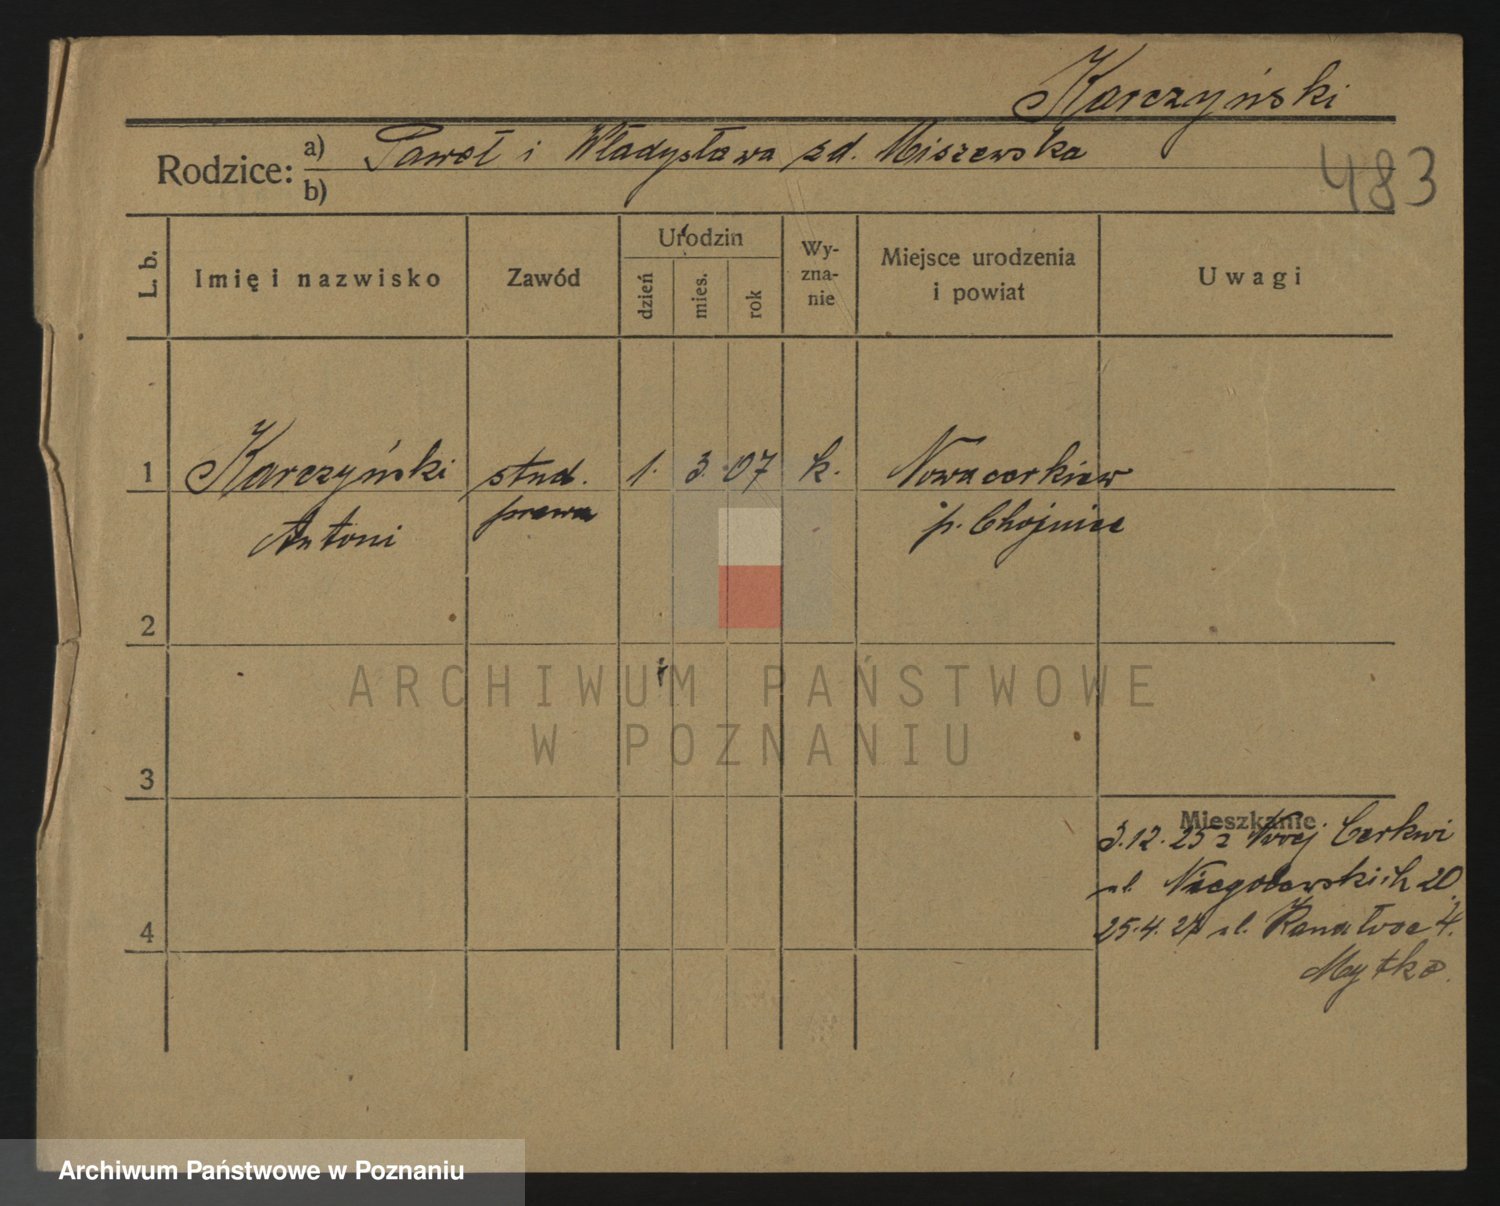 Karczyński
Rodzice: a) Paweł i Władysława zd. Miszewska
b)
483
L. b. Imię i nazwisko Zawód Urodzin dzień mies. rok Wy-zna-nie Miejsce urodzenia i powiat Uwagi
1 Karczyński stud. 1. 3. 07 k. Nowacerkiew
Antoni prawa p. Chojnice
2
ARCHIWUM PAŃSTWOWE
W POZNANIU
3
Mieszkanie
3.12.25 z Cerkwi
ul. Niegolewskich 20.
4
25.4.27 ul.
Archiwum Państwowe w Poznaniu